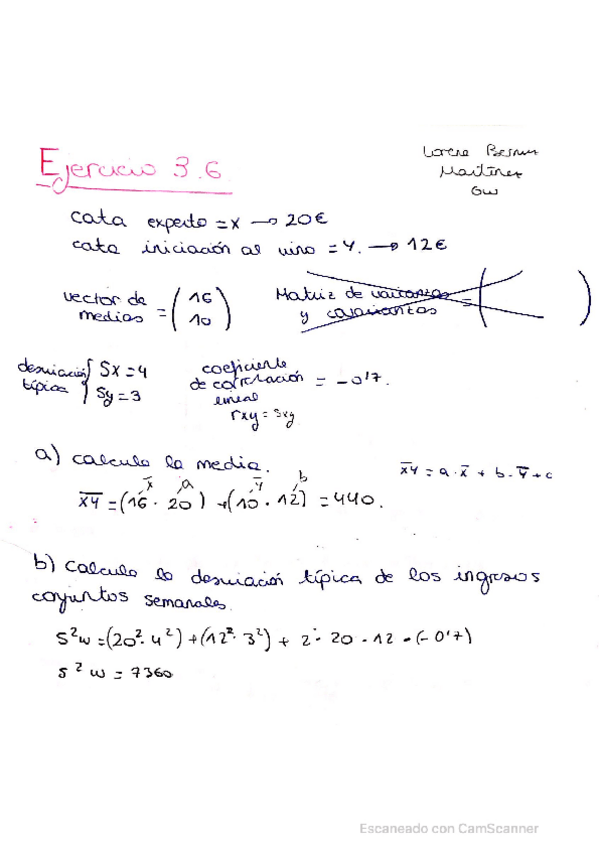 Ejercicio 3.6
Martínez
GW
cata experto = x → 20€
cata iniciación al vino = Y. → 12€
vector de medias = (16 10)
Matriz de varianzas y covariantas = ( )
desviación típica { Sx = 4
Sy = 3
coeficiente de correlación lineal = -0'7.
rxy = Sxy
a) calculo la media.
x̄ a ȳ b
X̄Ȳ = (16 · 20) + (10 · 12) = 440.
x̄ȳ = a · x̄ + b · ȳ + c
b) calculo la desviación típica de los ingresos
conjuntos semanales.
S²w = (20² · 4²) + (12² · 3²) + 2 · 20 · 12 · (-0'7)
S²w = 7360
Escaneado con CamScanner